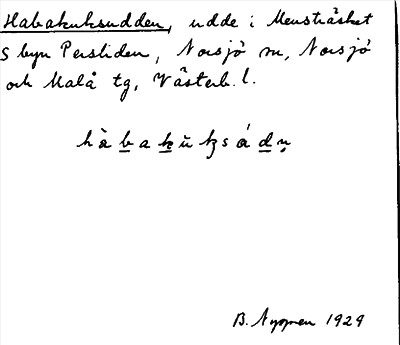 Habakuksudden, udde i Mensträsket
S byn Persliden, Norsjö sn, Norsjö
och Malå tg, Västerb. l.
hàbakŭksǻdn̥
B. Nyman 1929